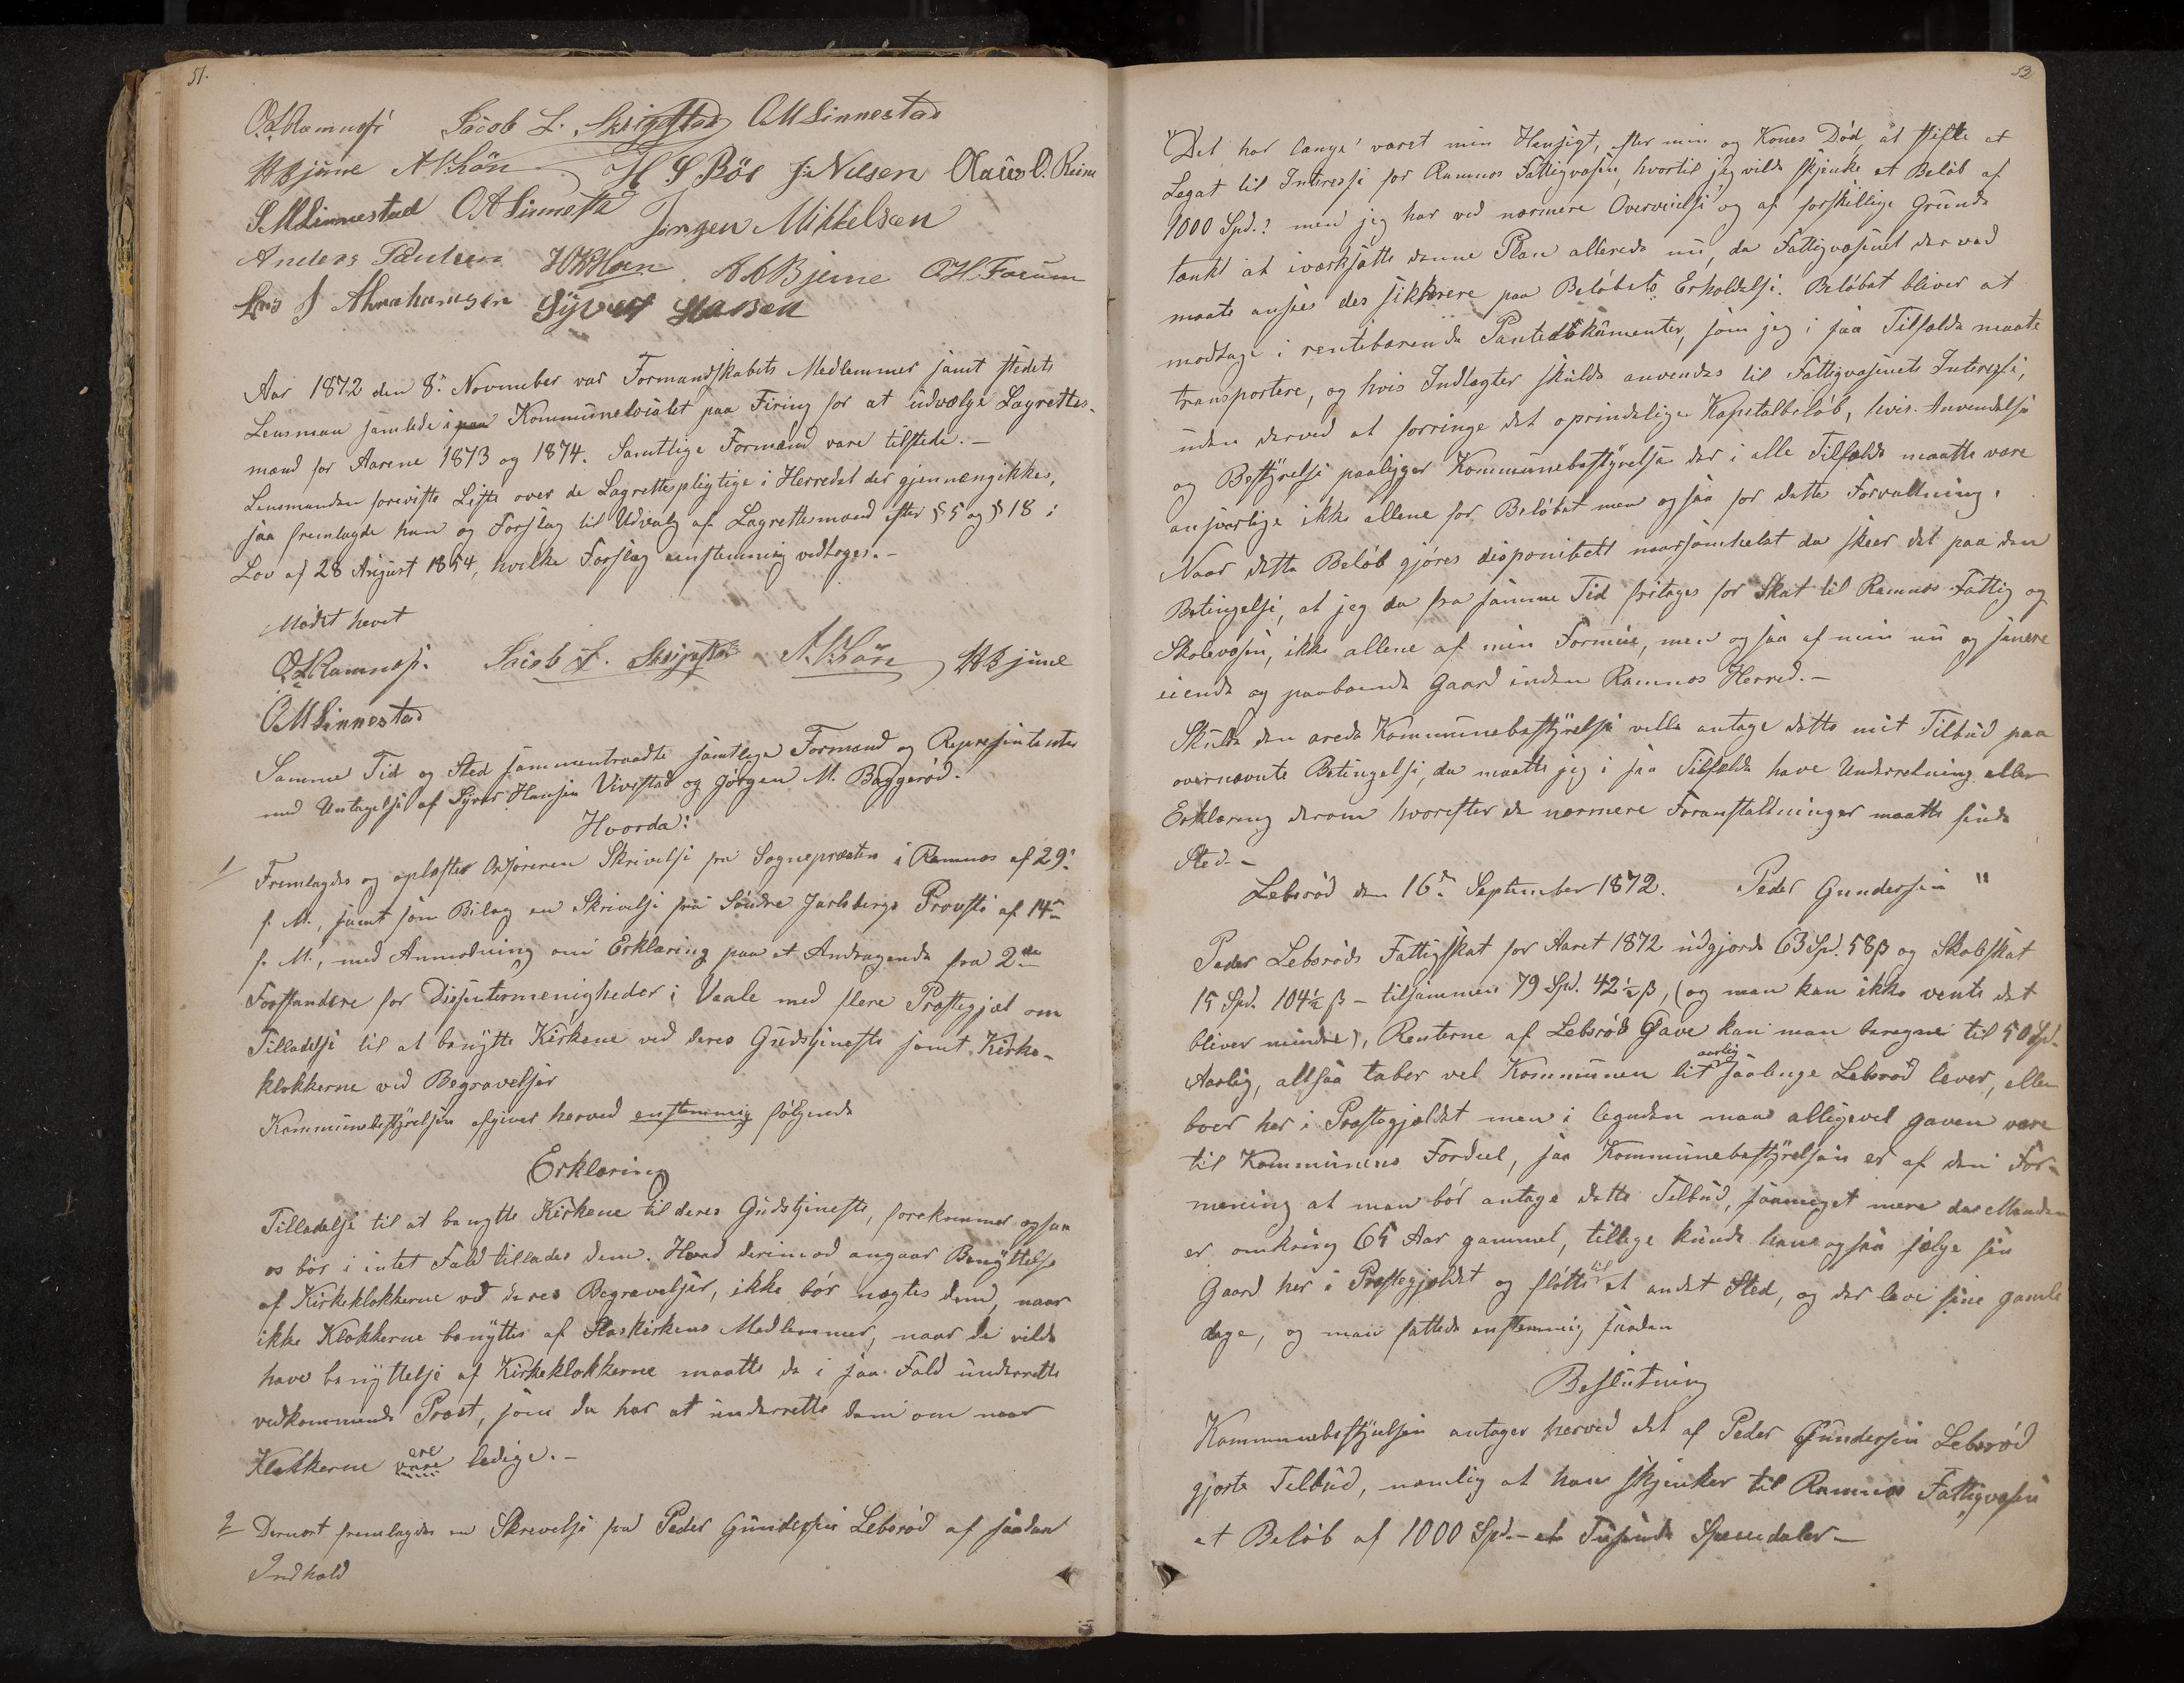 51.
O.L.Ramnæs Jacob L. Skrigstad OMLinnestad
HBjune A.K.Kõn H S Bös J. Nilsen Claus O. Reine
SMLinnestad OALinnestd Jörgen Mikkelsen
Anders Paulsen HKHoen AABjerne OHFoeum
Lars J Abrahamsen Syvert Hansen
Aar 1872 den 8de November var Formandskabets Medlemmer samt stedets
Lensman samlede i paa Kommunelocalet paa Firing for at udvælge Lagrettes-
mænd for Aarene 1873 og 1874. Samtlige Formænd vare tilstede.-
Lensmanden foreviste Liste over de Lagrettespligtige i Herredet der gjennemgikkes,
saa fremlagde han og Forslag til Udvalg af Lagrettemænd efter § 5 og § 18 i
Lov af 28 August 1854, hvilke Forslag enstemmig vedtoges.-
Mødet hævet
O.L.Ramnæs. Jacob L. Skrigstad A.K.Kõn HBjune
OMLinnestad
Samme Tid og Sted sammentraadte samtlige Formænd og Repræsentanter
med Untagelse af Syver Hansen Vivestad og Jørgen M. Baggerød.
Hvorda:
1 Fremlagdes og oplæstes Ordføreren Skrivelse fra Sognepræsten i Ramnæs af 29de
f. M., samt som Bilag en Skrivelse fra Søndre Jarlsbergs Provsti af 14de
f. M., med Anmodning om Erklæring paa et Andragende fra 2de
Forstandere for Dissentermenigheder i Vaale med flere Præstegjæl om
Tilladelse til at benytte Kirkene ved deres Gudstjeneste samt Kirke-
klokkerne ved Begravelser
Kommunebestyrelsen afgiver herved enstemmig følgende
Erklæring
Tilladelse til at benytte Kirkene til deres Gudstjeneste, forekommer ogsaa
os bør i intet Fald tillades dem. Hvad derimod angaar Benyttelse
af Kirkeklokkerne ved deres Begravelser, ikke bør nægtes dem, naar
ikke Klokkerne benyttes af Statskirkens Medlemmer, naar de vilde
have benyttelse af Kirkeklokkerne maatte de i saa Fald underrette
vedkommende Præst, som da har at underrette dem om naar
Klokkerne vare ere ledige.-
2 Dernæst fremlagdes en Skrivelse fra Peder Gundersen Lebsrød af saadan
Indhold
52
"Det har længe været min Hensigt, efter min og Kones Død, at stifte et
Legat til Interesse for Ramnæs Fattigvæsen, hvortil jeg vilde skjenke et Beløb af
1000 Spd.: men jeg har ved nærmere Overveielse og af forskjellige Grunde
tænkt at iværksætte denne Plan allerede nu, da Fattigvæsenet derved
maate ansees des sikkrere paa Beløbets Erholdelse. Beløbet bliver at
modtage i rentebærende Pantedokumenter, som jeg i saa Tilfælde maate
transportere, og hvis Indtægter skulde anvendes til Fattigvæsenets Interesse,
uden derved at forringe det oprindelige Kapitalbeløb, hvis Anvendelse
og Bestyrelse paaligger Kommunebestyrelsen der i alle Tilfælde maatte være
ansvarlige ikke allene for Beløbet men ogsaa for dette Forvaltning.
Naar dette Beløb gjøres disponibelt naarsomhelst da sker det paa den
Betingelse, at jeg da fra samme Tid fritages for Skat til Ramnæs Fattig og
Skolevæsen, ikke allene af min Formue, men ogsaa af min nu og senere
eiende og paaboende Gaard inden Ramnæs Herred.-
Skulde den ærede Kommunebestyrelse ville antage dette mit Tilbud paa
overnævnte Betingelse, da maatte jeg i saa Tilfælde have Underretning eller
Erklæring derom hvorefter de nærmere Foranstaltninger maatte finde
Sted.-
Lebsrød den 16de September 1872. Peder Gundersen "
Peder Lebsrøds Fattigskat for Aaret 1872 udgjorde 63 Spd. 58 ß og Skoleskat
15 Spd. 104½ ß - tilsammen 79 Spd. 42½ ß, (og man kan ikke vente det
bliver mindre), Renterne af Lebsrøds Gave kan man beregne til 50 Spd.
Aarlig, altsaa taber vel Kommunen lit aarlig saalenge Lebsrød lever, eller
boer her i Præstegjældet men i legnden maa alligevel gaven være
til Kommunens Fordeel, saa Kommunebestyrelsen er af den For-
mening at man bør antage dette Tilbud, saameget mere da Manden
er omkring 65 Aar gammel, tillige kunde han ogsaa sælge sin
Gaard her i Præstegjældet og fløtte til et andet Sted, og der leve sine gamle
dage, og man fattede enstemmig saadan
Beslutning
Kommunebestyrelsen antager herved det af Peder Gundersen Lebsrød
gjorte Tilbud, nemlig at han skjenker til Ramnæs Fattigvæsen
et Beløb af 1000 Spd.- et Tusinde Speciedaler-